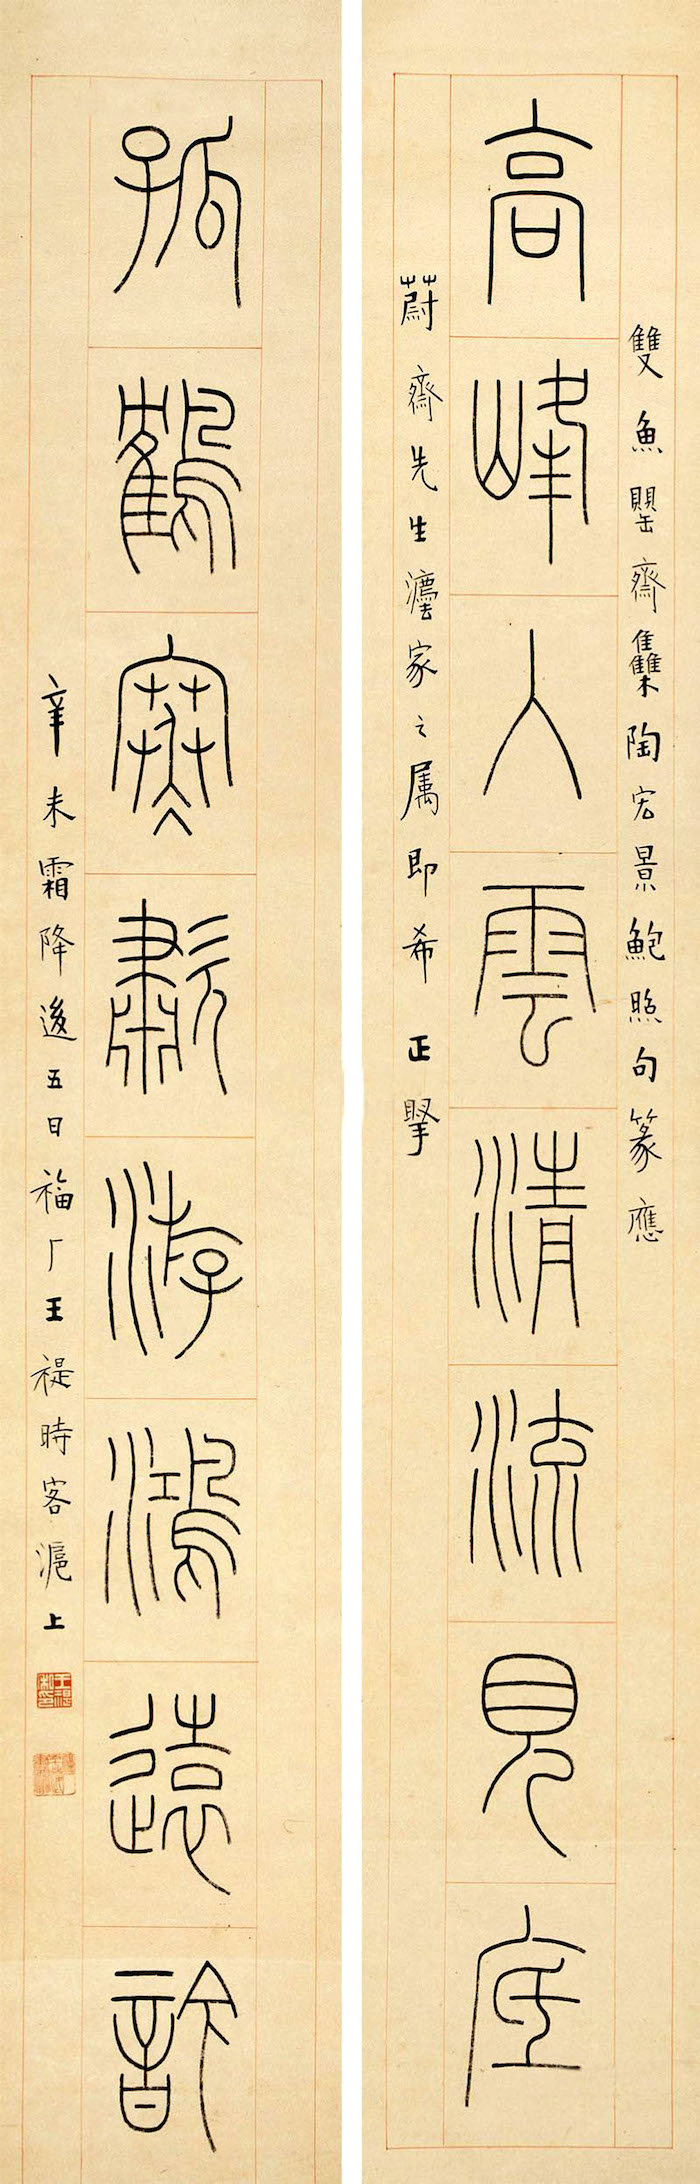 雙魚罌齋雧陶宏景鮑照句篆應
高峰入雲清流見底
蔚齋先生灋家之属即希正掔
孤鶴寒歗游鴻遠䪩
辛未霜降後五日福厂王禔時客滬上
王禔私印